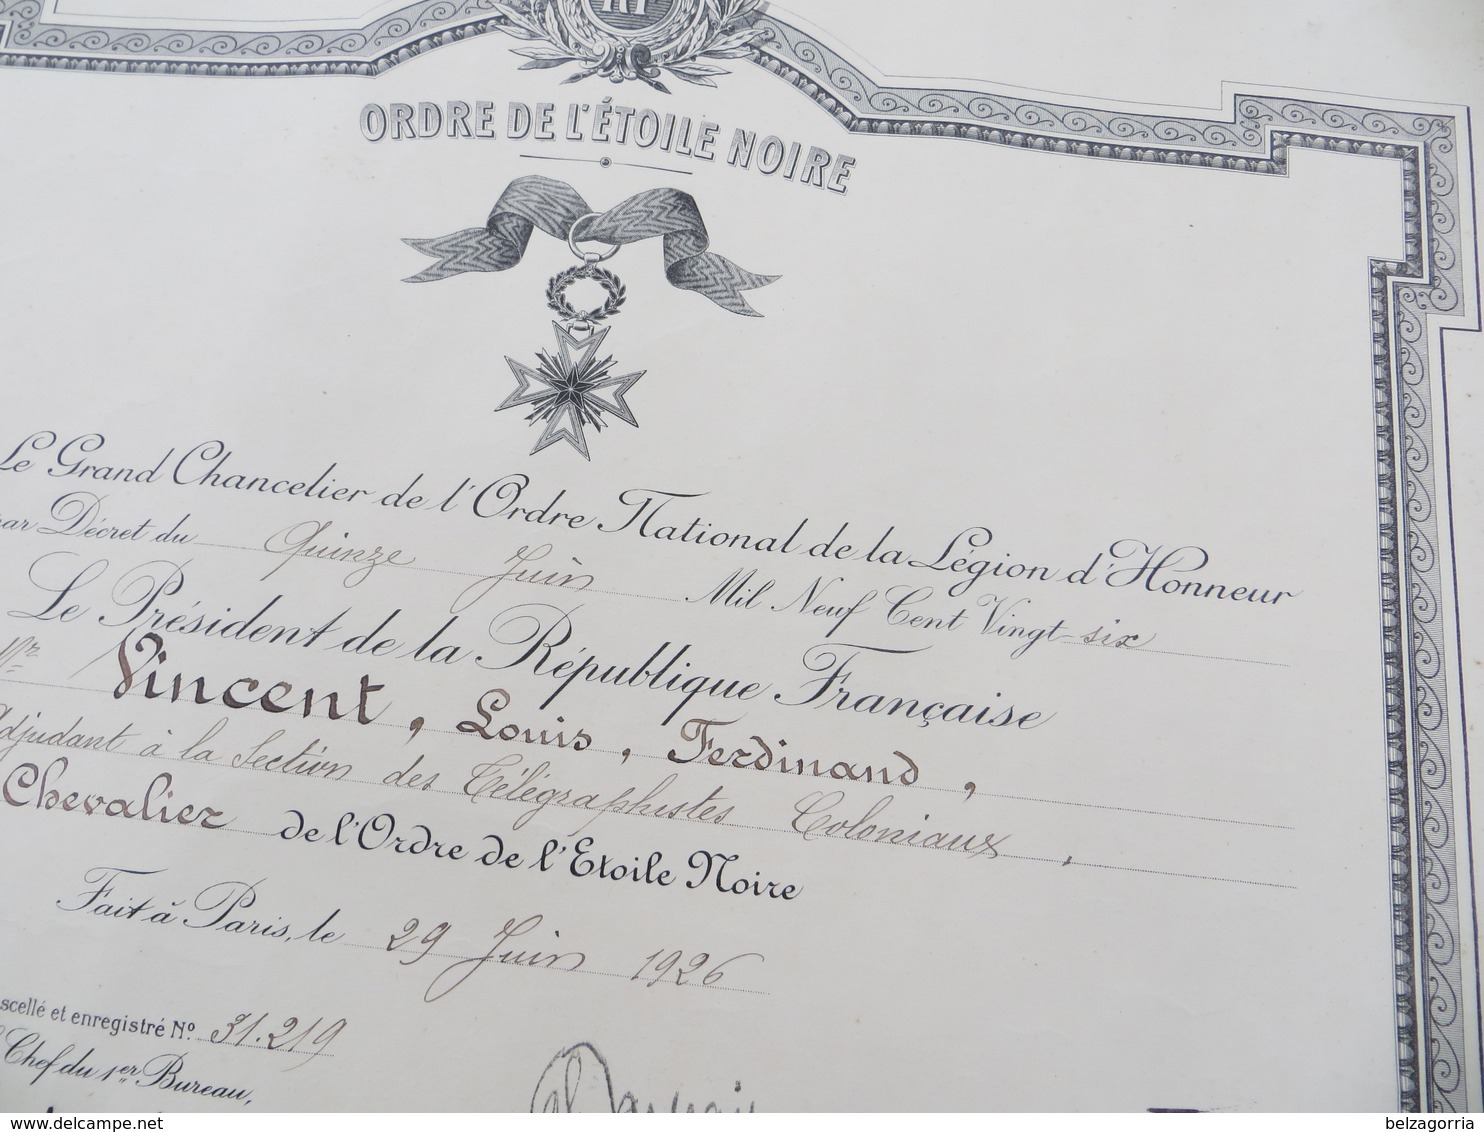 RF
ORDRE DE L'ÉTOILE NOIRE
Le Grand Chancelier de l'Ordre National de la Légion d'Honneur
par Décret du Quinze Juin Mil Neuf Cent Vingt-six
Le Président de la République Française
Mr Vincent, Louis, Ferdinand,
Adjudant à la Section des Télégraphistes Coloniaux,
Chevalier de l'Ordre de l'Etoile Noire
Fait à Paris, le 29 Juin 1926
scellé et enregistré No. 31.219
Chef du 1er Bureau,
www.delcampe.net
belzagorria